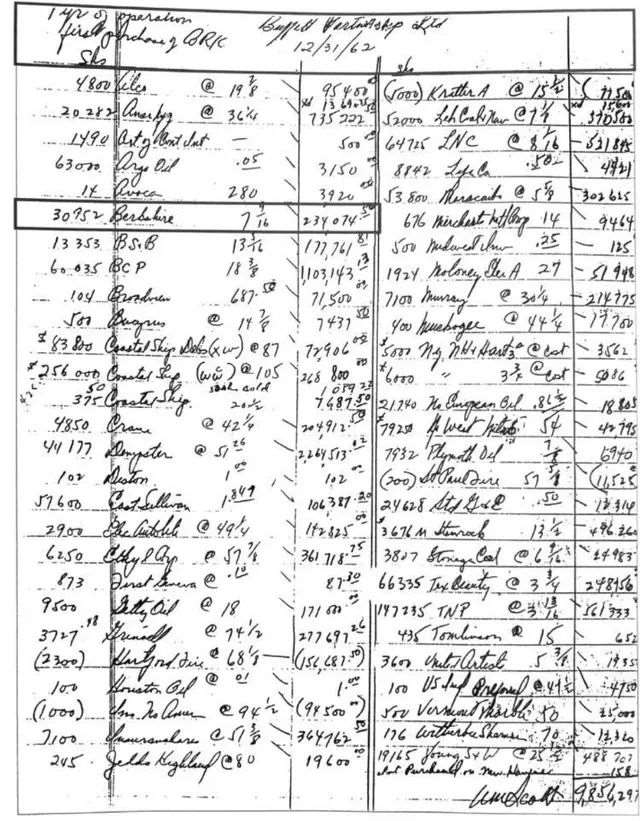 1 yr of operation
first purchase of BRK
Buffett Partnership Ltd
12/31/62
Shs
4800 Giles @ 19 7/8 95400 00
20282 Anarhyg @ 36 1/4 735222
1490 Art of Cont Inst — 500 00
63000 Argo Oil .05 3150 00
14 Avoca 280 3920 00
30952 Berkshire 7 9/16 234074 50
13353 BS&B 13 5/16 177,761 81
60,035 BCP 18 3/8 1,103,143 13
104 687.50 71,500 00
500 @ 14 7/8 7437 50
$83800 Coastal Ship Debs (xw) @ 87 72,906 00
$256000 Coastal Ship (ww) @ 105 268 800
375 Coastal Ship 20 1/2 7,687.50
4850 Crane @ 42 1/4 204,912 50
44177 Dempster @ 51 26
102 Diston 1 00 102 00
57600 East Sullivan 1.849 106387.20
2900 Elec Autolite @ 49 1/4 142825 00
6250 @ 57 7/8 361 718 75
873 First Geneva @ .10 87.30
9500 Getty Oil @ 18 171 000 00
3727 Grinnell @ 74 1/2 277697 26
(2300) Hartford Fire @ 68 1/8 (156,687.50)
100 Houston Oil @ 01 1.00
(1000) Ins. No Amer @ 94 1/2 (94 500 00)
7100 Insuranshares @ 51 3/8 364762
245 Jeddo Highland @ 80 19600 00
Shs
(5000) Kratter A @ 15 1/2 77500
52000 Leh Coal & Nav @ 7 1/8 370500
64725 LNC @ 8 1/16 521845
8842 Life Co 4421
53800 Maracaibo @ 5 5/8 302625
676 Merchants 14 9464
500 Midwest Inv .25 125
1924 Moloney Elec A 27 51948
7100 Murray @ 30 1/4 214775
400 Muskogee @ 44 1/4 17700
$5000 N.Y. NH & Hart @ cost 3562
$6000 " @ cost 5086
21740 No European Oil .86 1/2 18805
$7925 No West 54 42795
7932 Plymouth Oil 7/8 6940
(200) St Paul Fire 57 5/8 (11,525)
24628 Std G&E .50 12,314
13 1/2
3807 Stonega Coal @ 6 9/16 24983
66335 Tex Security @ 3 3/4 248756
147235 TNP @ 3 13/16 561 333
435 Tomlinson @ 15 652
3600 United Artists 5 3/8 1935
100 US Preferred @ 47 1/2 4750
500 Vermont Marble 50 25,000
176 Witherbee Sherman 70 12,320
19165 Young S&W @ 25 1/2 488 707
158
9,856,297